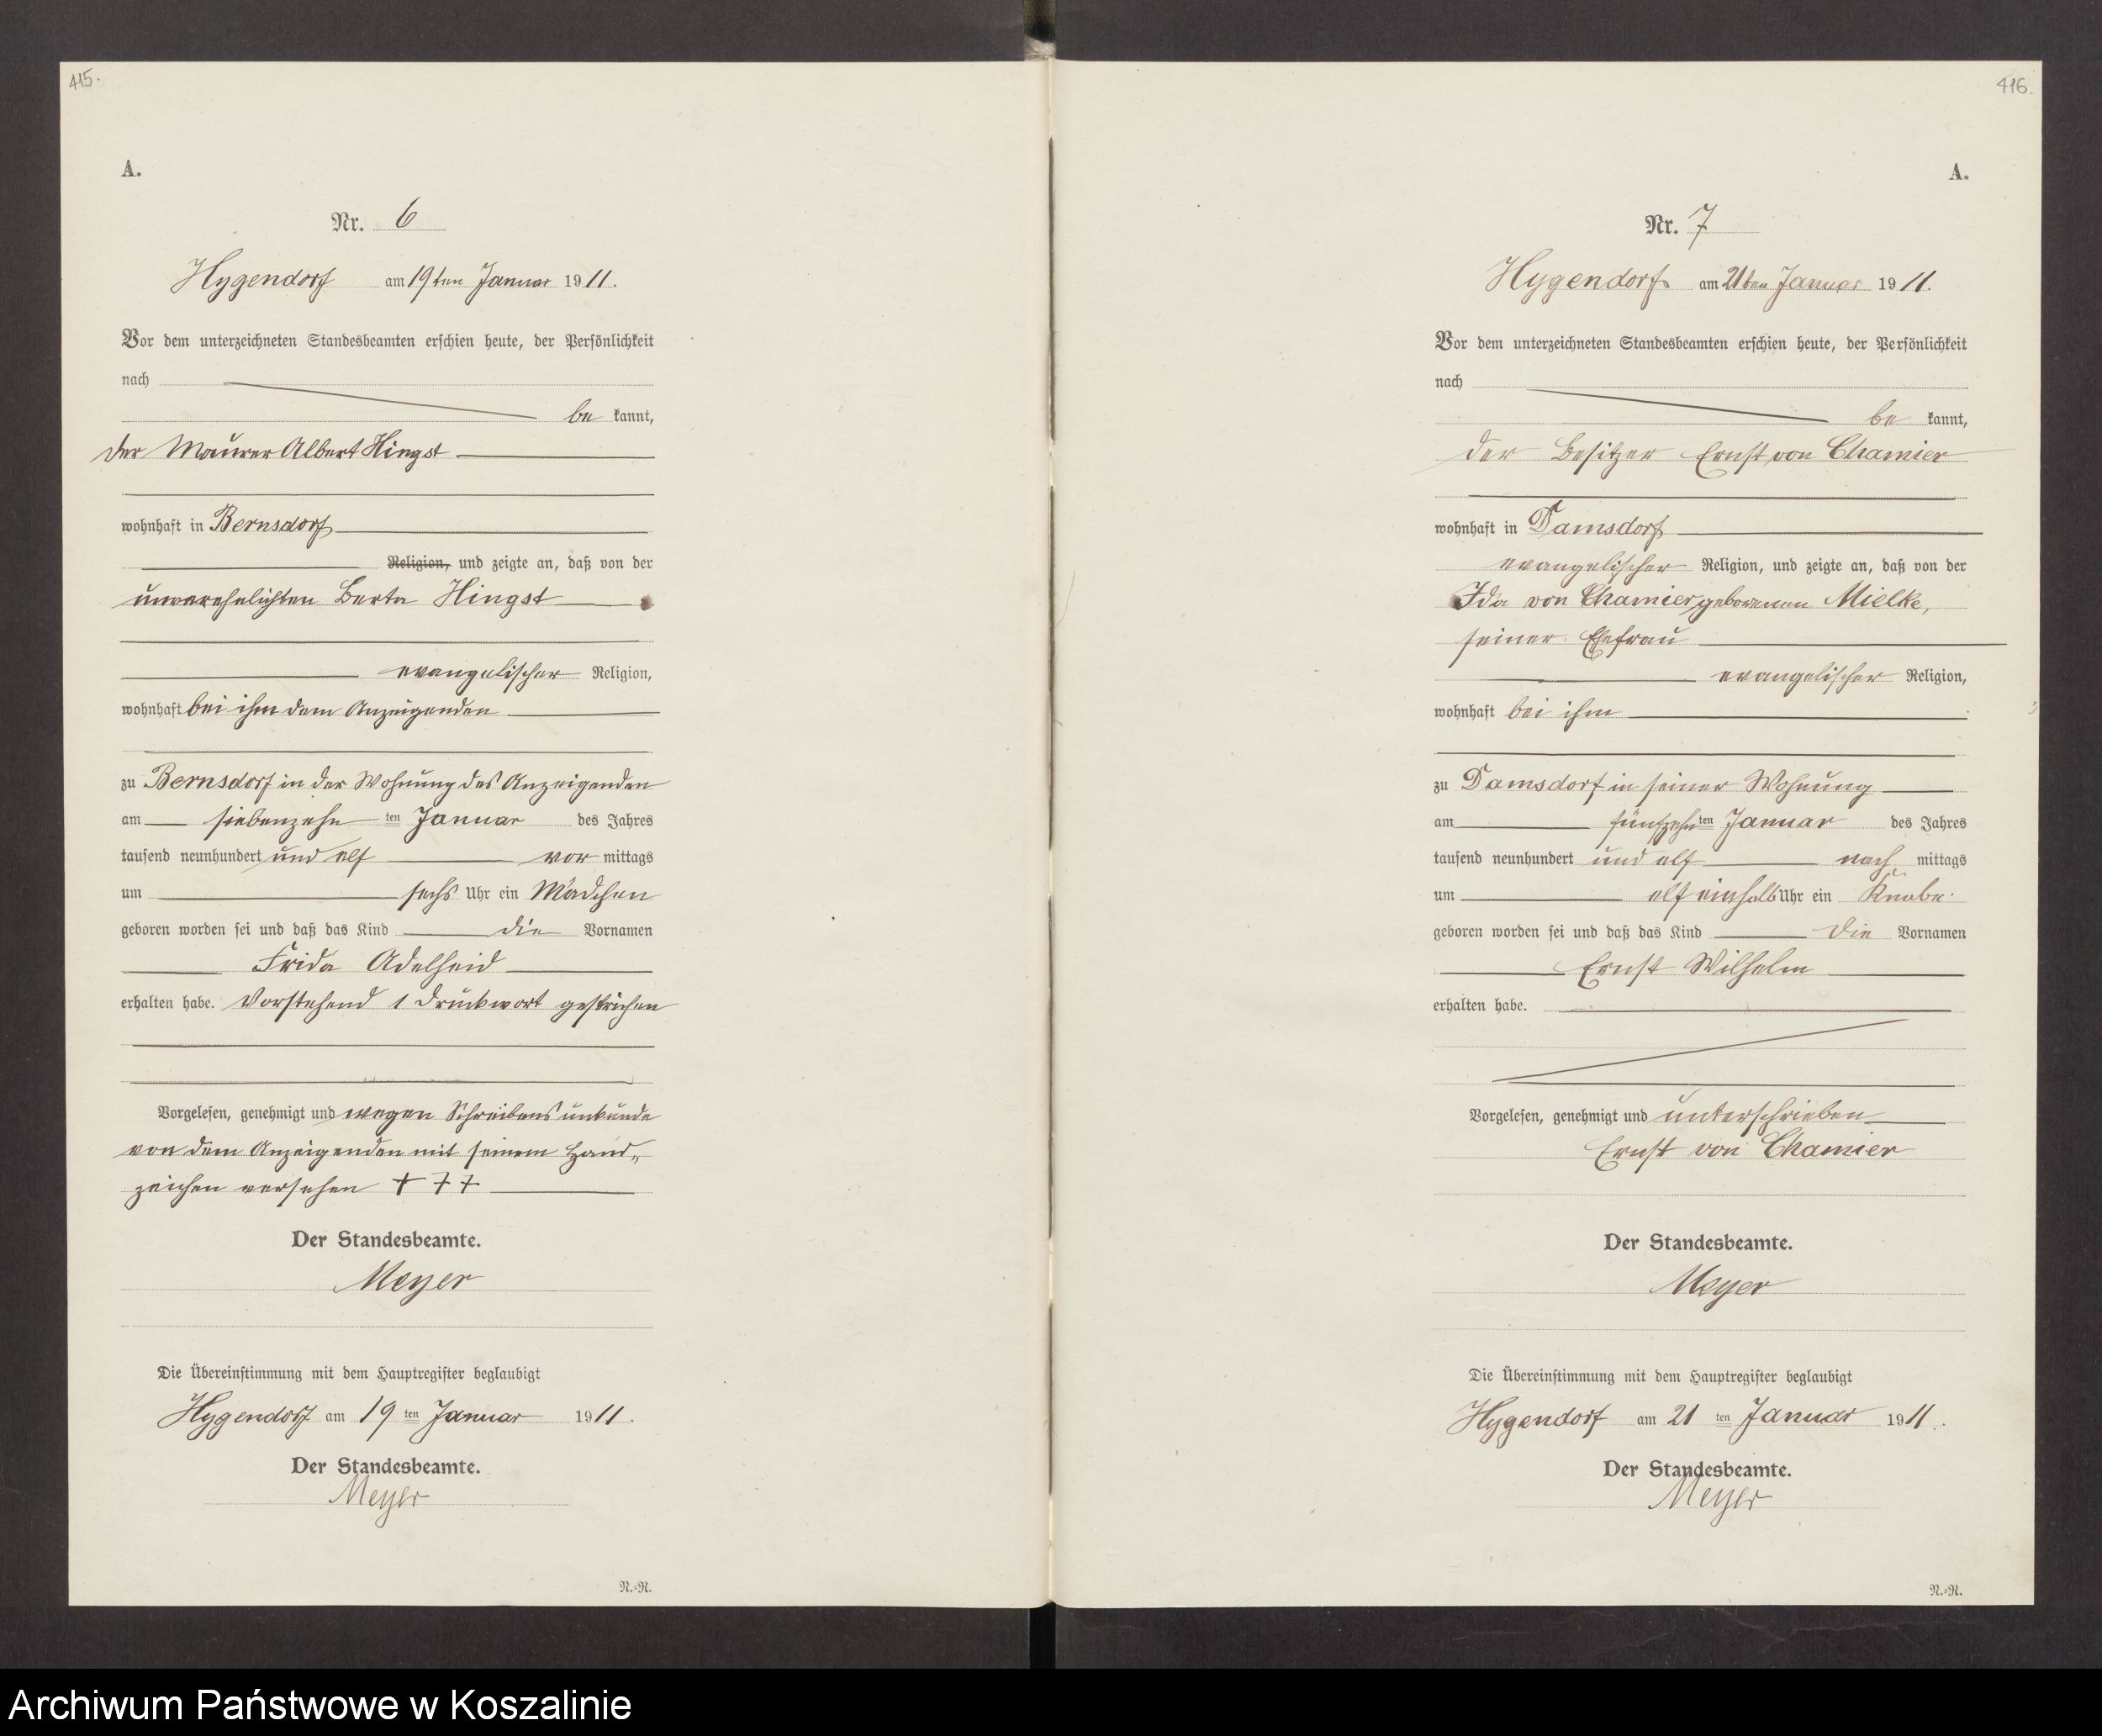 415.
A.
Nr. 6
Hygendorf am 19ten Januar 1911.
Vor dem unterzeichneten Standesbeamten erschien heute, der Persönlichkeit
nach
be kannt,
der Maurer Albert Hingst
wohnhaft in Bernsdorf
Religion, und zeigte an, daß von der
unverehelichten Berta Hingst
evangelischer Religion,
wohnhaft bei ihm dem Anzeigenden
zu Bernsdorf in der Wohnung des Anzeigenden
am siebenzehn ten Januar des Jahres
tausend neunhundert und elf vor mittags
um sechs Uhr ein Mädchen
geboren worden sei und daß das Kind die Vornamen
Frida Adelheid
erhalten habe. Vorstehend 1 Druckwort gestrichen
Vorgelesen, genehmigt und wegen Schreibensunkunde
von dem Anzeigenden mit seinem Hand„
zeichen versehen + + +
Der Standesbeamte.
Meyer
Die Übereinstimmung mit dem Hauptregister beglaubigt
Hygendorf am 19 ten Januar 1911.
Der Standesbeamte.
Meyer
N.=R.
416.
A.
Nr. 7
Hygendorf am 21ten Januar 1911.
Vor dem unterzeichneten Standesbeamten erschien heute, der Persönlichkeit
nach
be kannt,
der Besitzer Ernst von Chamier
wohnhaft in Damsdorf
evangelischer Religion, und zeigte an, daß von der
Ida von Chamier geborenen Mielke,
seiner Ehefrau
evangelischer Religion,
wohnhaft bei ihm
zu Damsdorf in seiner Wohnung
am fünfzehn ten Januar des Jahres
tausend neunhundert und elf nach mittags
um elf einhalb Uhr ein Knabe
geboren worden sei und daß das Kind die Vornamen
Ernst Wilhelm
erhalten habe.
Vorgelesen, genehmigt und unterschrieben
Ernst von Chamier
Der Standesbeamte.
Meyer
Die Übereinstimmung mit dem Hauptregister beglaubigt
Hygendorf am 21 ten Januar 1911.
Der Standesbeamte.
Meyer
N.=R.
Archiwum Państwowe w Koszalinie